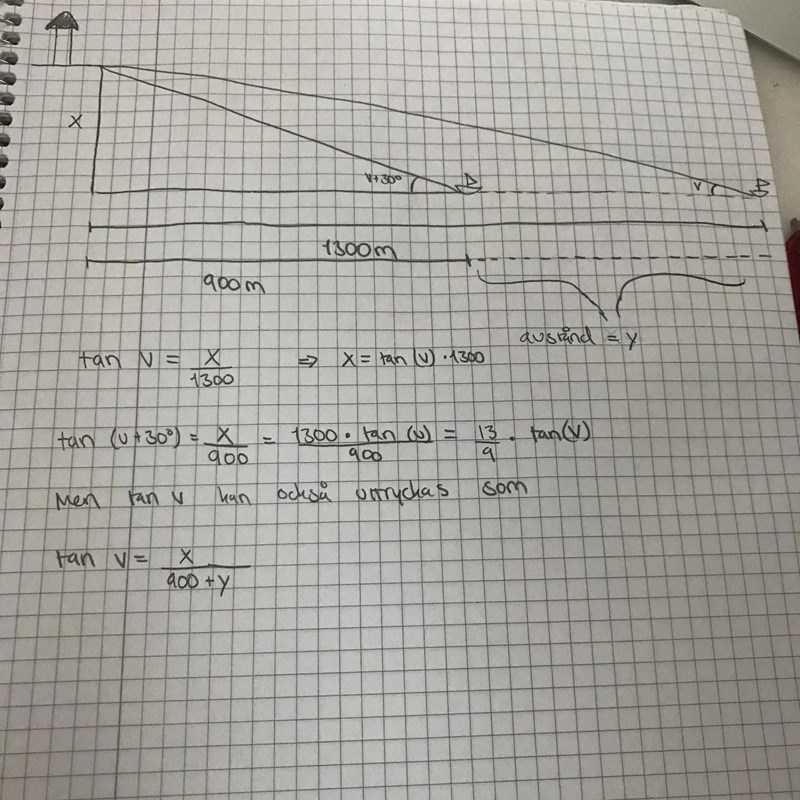 X
v+30°
v
1300m
900m
avstånd = y
tan v = x/1300 ⇒ x = tan(v) · 1300
tan (v+30°) = x/900 = 1300 · tan (v)/900 = 13/9 · tan(v)
Men tan v kan också uttryckas som
tan v = x/900 + y